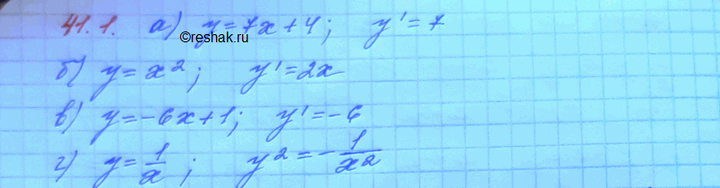 41.1. а) y = 7x + 4; y' = 7
©reshak.ru
б) y = x²; y' = 2x
в) y = -6x + 1; y' = -6
г) y = 1/x; y² = -1/x²